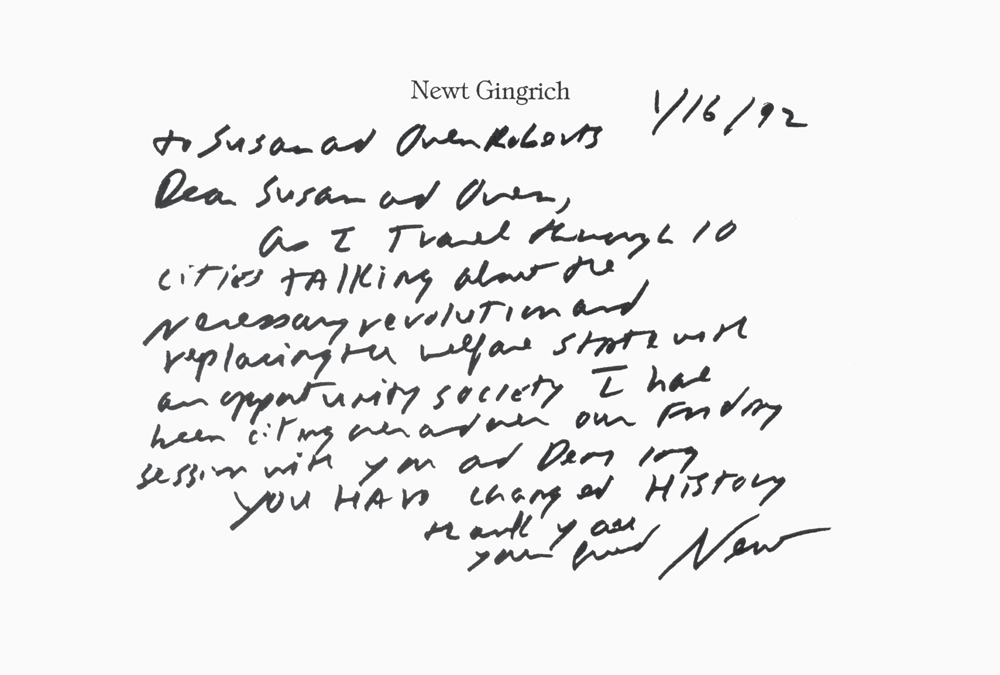 Newt Gingrich
1/16/92
to Susan and Owen Roberts
Dear Susan and Owen,
as I Travel through 10
cities talking about the
necessary revolution and
replacing the welfare state with
an opportunity society I have
been citing over and over our Friday
session with you and Deming
YOU HAVE changed History
thank you
your friend Newt